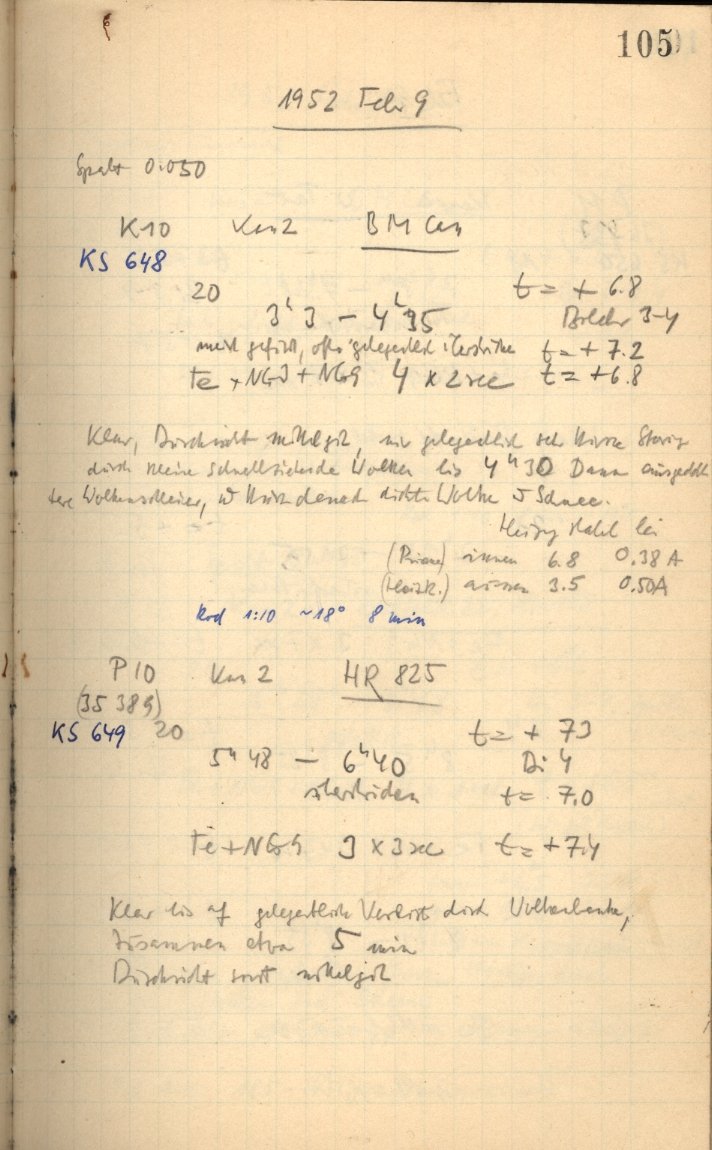 105
1952 Febr 9
Spalt 0.050
K10 Kam 2 BM Cam
KS 648
20 t = + 6.8
3h 3 – 4h 35 Bilder 3-4
meist geführt, öfter gelegentlich t = + 7.2
Fe + NG3 + NG9 4 x 2 sec t = + 6.8
Klar, Durchsicht mittelgut, nur gelegentlich sehr kurze Störung
durch kleine schnellziehende Wolken bis 4h 30 Dann
Wolkenschleier, kurz danach dichte Wolke Schnee.
bei
innen 6.8 0.38 A
aussen 3.5 0.50A
Rod 1:10 ~18° 8 min
P10 Kam 2 HR 825
(35 389)
KS 649 20 t = + 7.3
5h 48 – 6h 40 Bi 4
t = 7.0
Fe + NG9 3 x 3 sec t = + 7.4
Klar bis auf gelegentliche Verluste durch Wolkenbänke,
zusammen etwa 5 min
Durchsicht sonst mittelgut